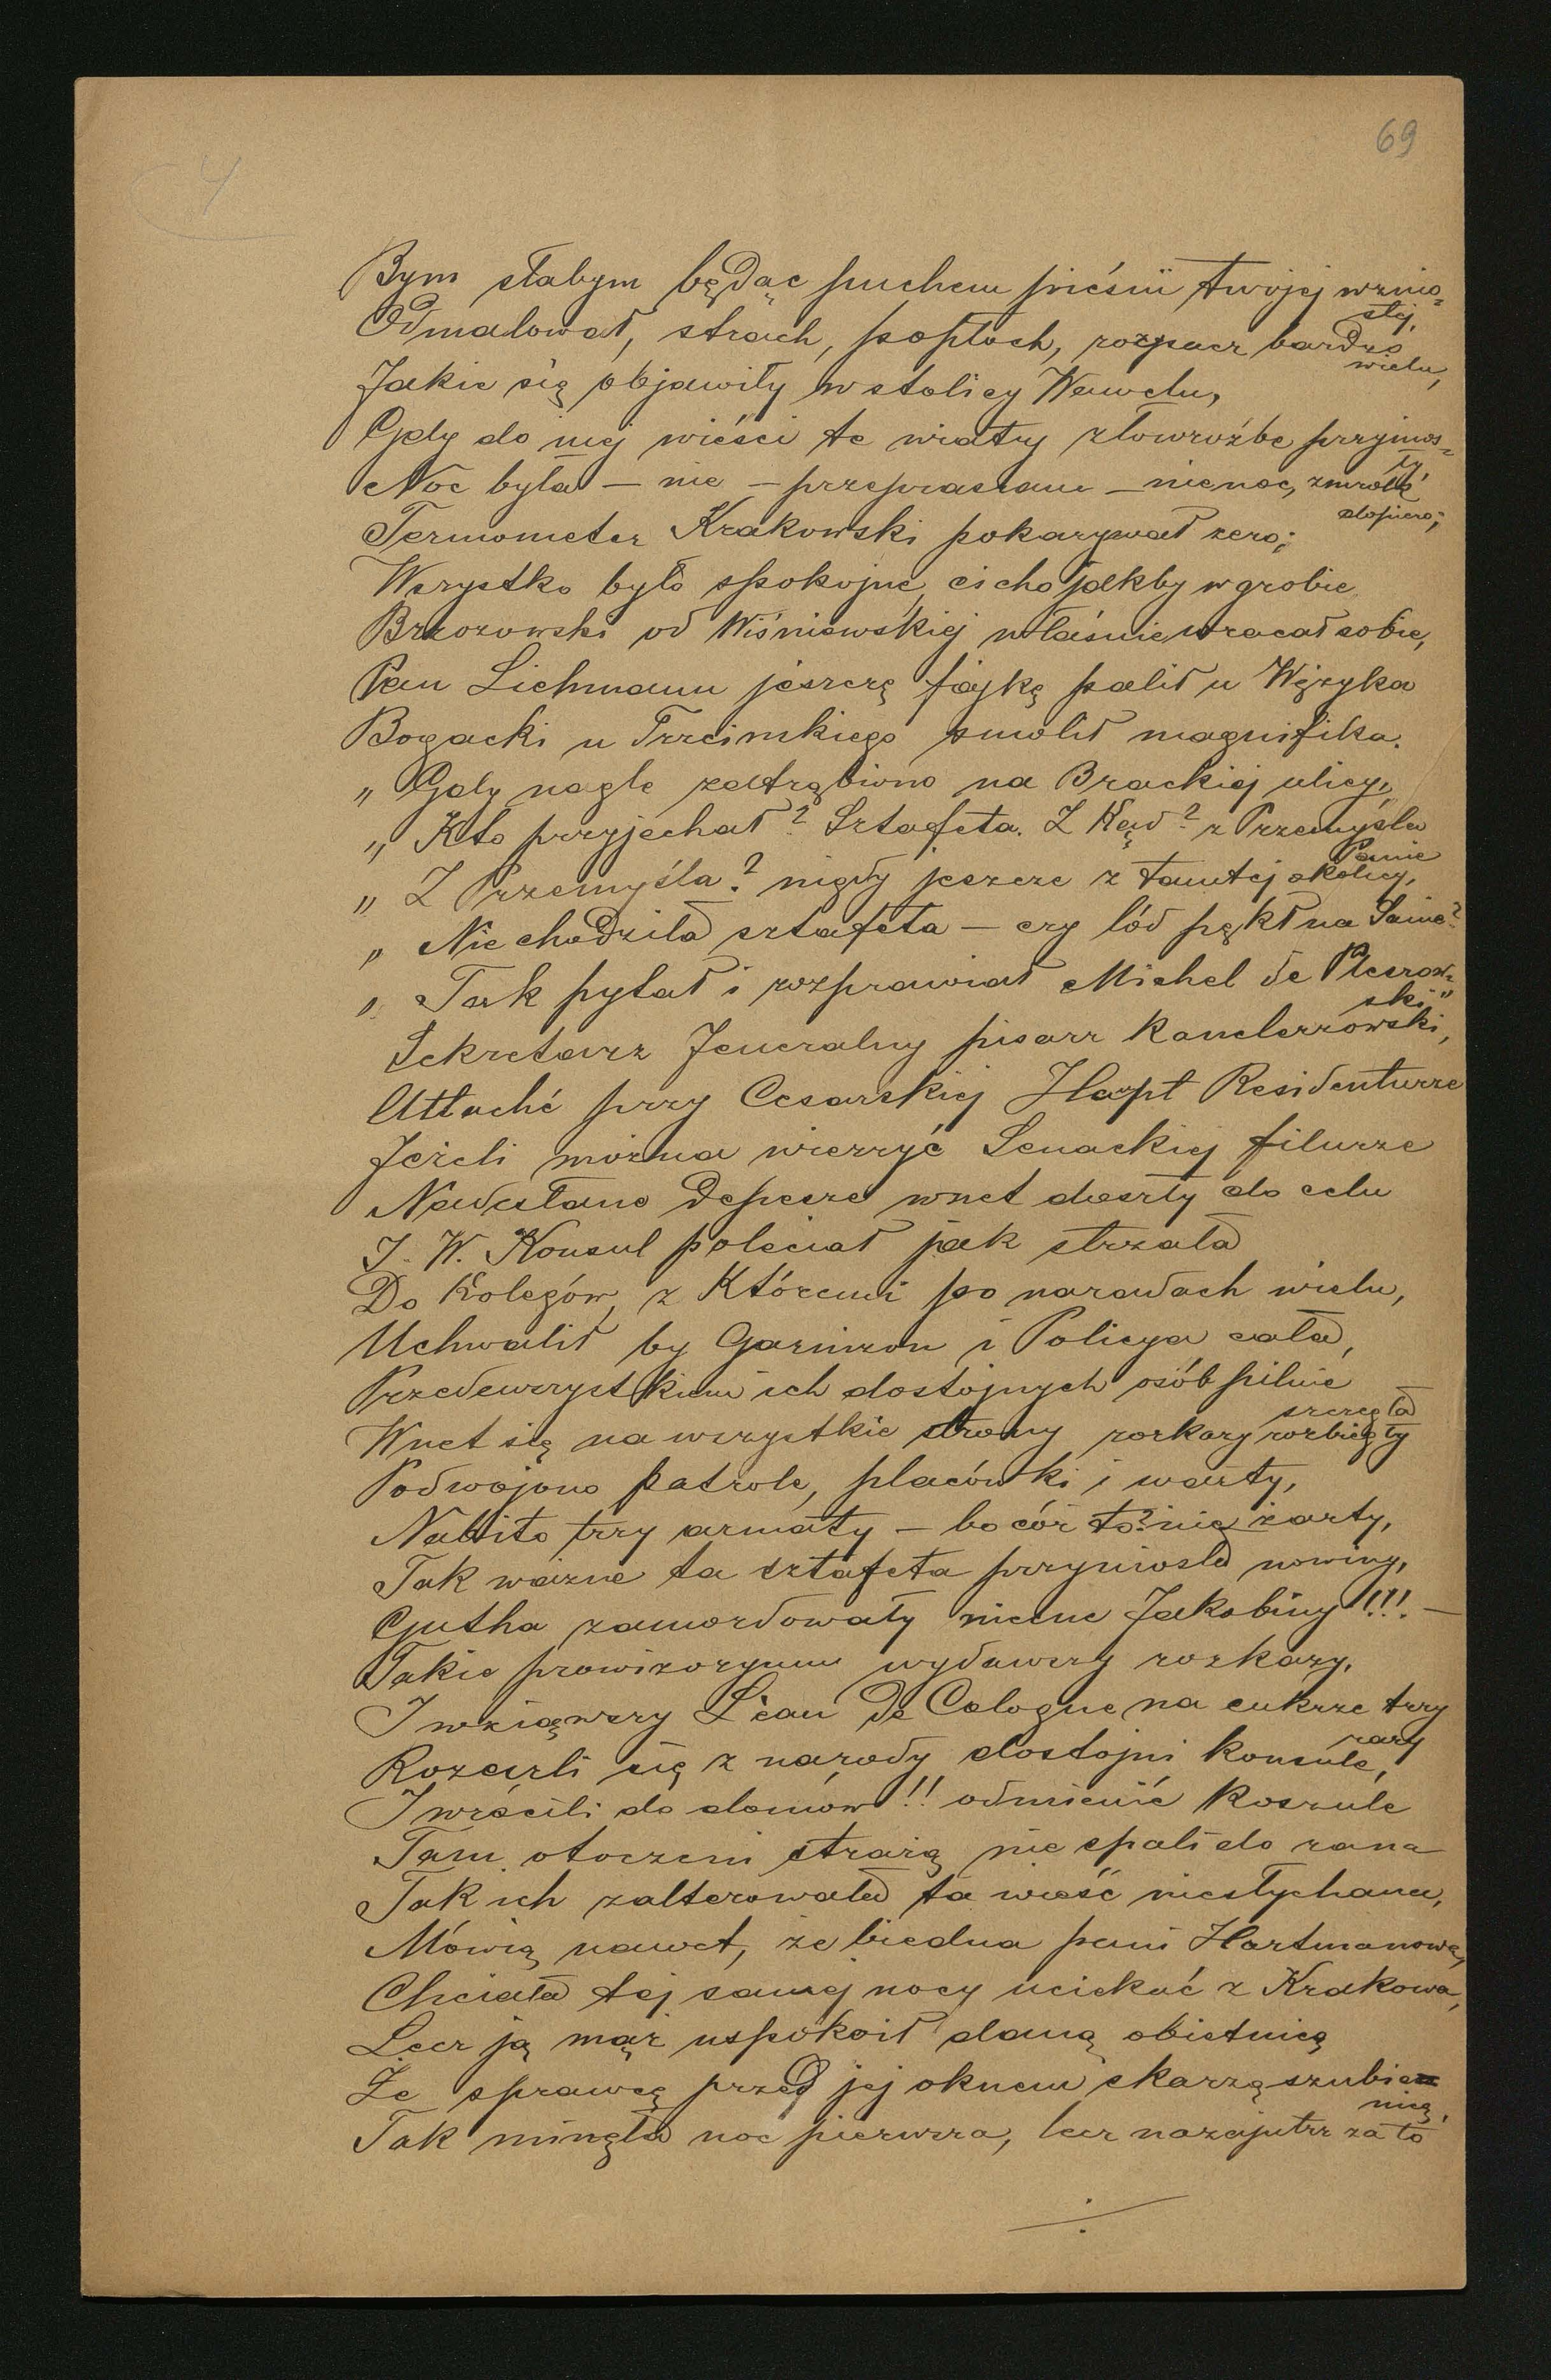 69
4
Bym słabym będąc puchem pieśni twojej wznio=
słej,
Odmalował, strach, popłoch, rozpacz bardzo
wielu,
Jakie się objawiły w stolicy Wawelu,
Gdy do niej wieści te wiatry złowróżbe przynios=
ły,
Noc była — nie — przepraszam — nie noc, zmrok
dopiero;
Termometer Krakowski pokazywał zero;
Wszystko było spokojne, cicho jakby w grobie
Brzozowski od Wiśniewskiej właśnie wracał sobie,
Pan Lichmann jeszcze fajkę palił u Wężyka
Bogacki u Trzcinskiego smolił magnifika.
„ Gdy nagle zatrąbiono na Brackiej ulicy,
„ Kto przyjechał? Sztafeta. Z Kąd? z Przemyśla
Panie
„ Z Przemyśla? nigdy jeszcze z tamtej okolicy,
„ Nie chodziła sztafeta — czy lód pękł na Sanie?
„ Tak pytał i rozprawiał Michel de Pleszow=
ski"
Sekretarz Jeneralny pisarz Kanclerzowski,
Attaché przy Cesarskiej Haupt Residenturze
Jeżeli można wierzyć Senackiej filurze
Nadesłane Depesze wnet doszły do celu
J. W. Konsul poleciał jak strzała
Do Kolegów, z Któremi po naradach wielu,
Uchwalił by Garnizon i Policya cała,
Przedewszystkiem ich dostojnych osób pilnie
szczegła
Wnet się na wszystkie strony rozkazy rozbiegły
Podwojono patrole, placówki i warty,
Nabito trzy armaty — bo cóż to? nie żarty,
Tak ważne ta sztafeta przyniosła nowiny,
Gutha zamordowały niecne Jakobiny!!! —
Takie prowizoryum wydawszy rozkazy,
I wziąwszy L'eau de Cologne na cukrze trzy
razy
Rozeszli się z narady dostojni konsule,
I wrócili do domów!! odmienić koszule
Tam otoczeni strażą nie spali do rana
Tak ich zalterowała ta wieść niesłychana,
Mówią nawet, że biedna pani Hartmanowa,
Chciała tej samej nocy uciekać z Krakowa,
Lecz ją mąż uspokoił daną obietnicą
Że sprawcę przed jej oknem skarzą szubie=
nicą,
Tak minęła noc pierwsza, lecz nazajutrz za to